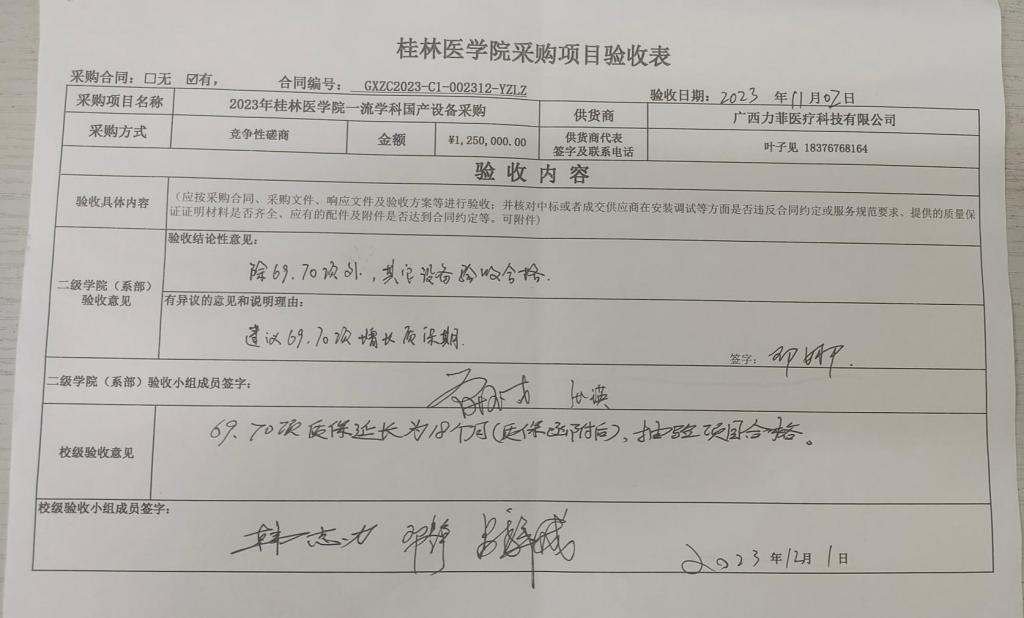 桂林医学院采购项目验收表
采购合同：☐无 ☑有， 合同编号： GXZC2023-C1-002312-YZLZ 验收日期：2023 年11月02日
采购项目名称 2023年桂林医学院一流学科国产设备采购 供货商 广西力菲医疗科技有限公司
采购方式 竞争性磋商 金额 ¥1,250,000.00 供货商代表 签字及联系电话 叶子见 18376768164
验收内容
验收具体内容
（应按采购合同、采购文件、响应文件及验收方案等进行验收；并核对中标或者成交供应商在安装调试等方面是否违反合同约定或服务规范要求、提供的质量保
证证明材料是否齐全、应有的配件及附件是否达到合同约定等。可附件）
二级学院（系部）
验收意见
验收结论性意见：
除69.70项外，其它设备验收合格.
有异议的意见和说明理由：
建议69.70项增长质保期.
签字：
二级学院（系部）验收小组成员签字：
校级验收意见
69.70项质保延长为18个月（质保函附后），抽验项目合格。
校级验收小组成员签字：
韩志力 邓静
2023年12月1日